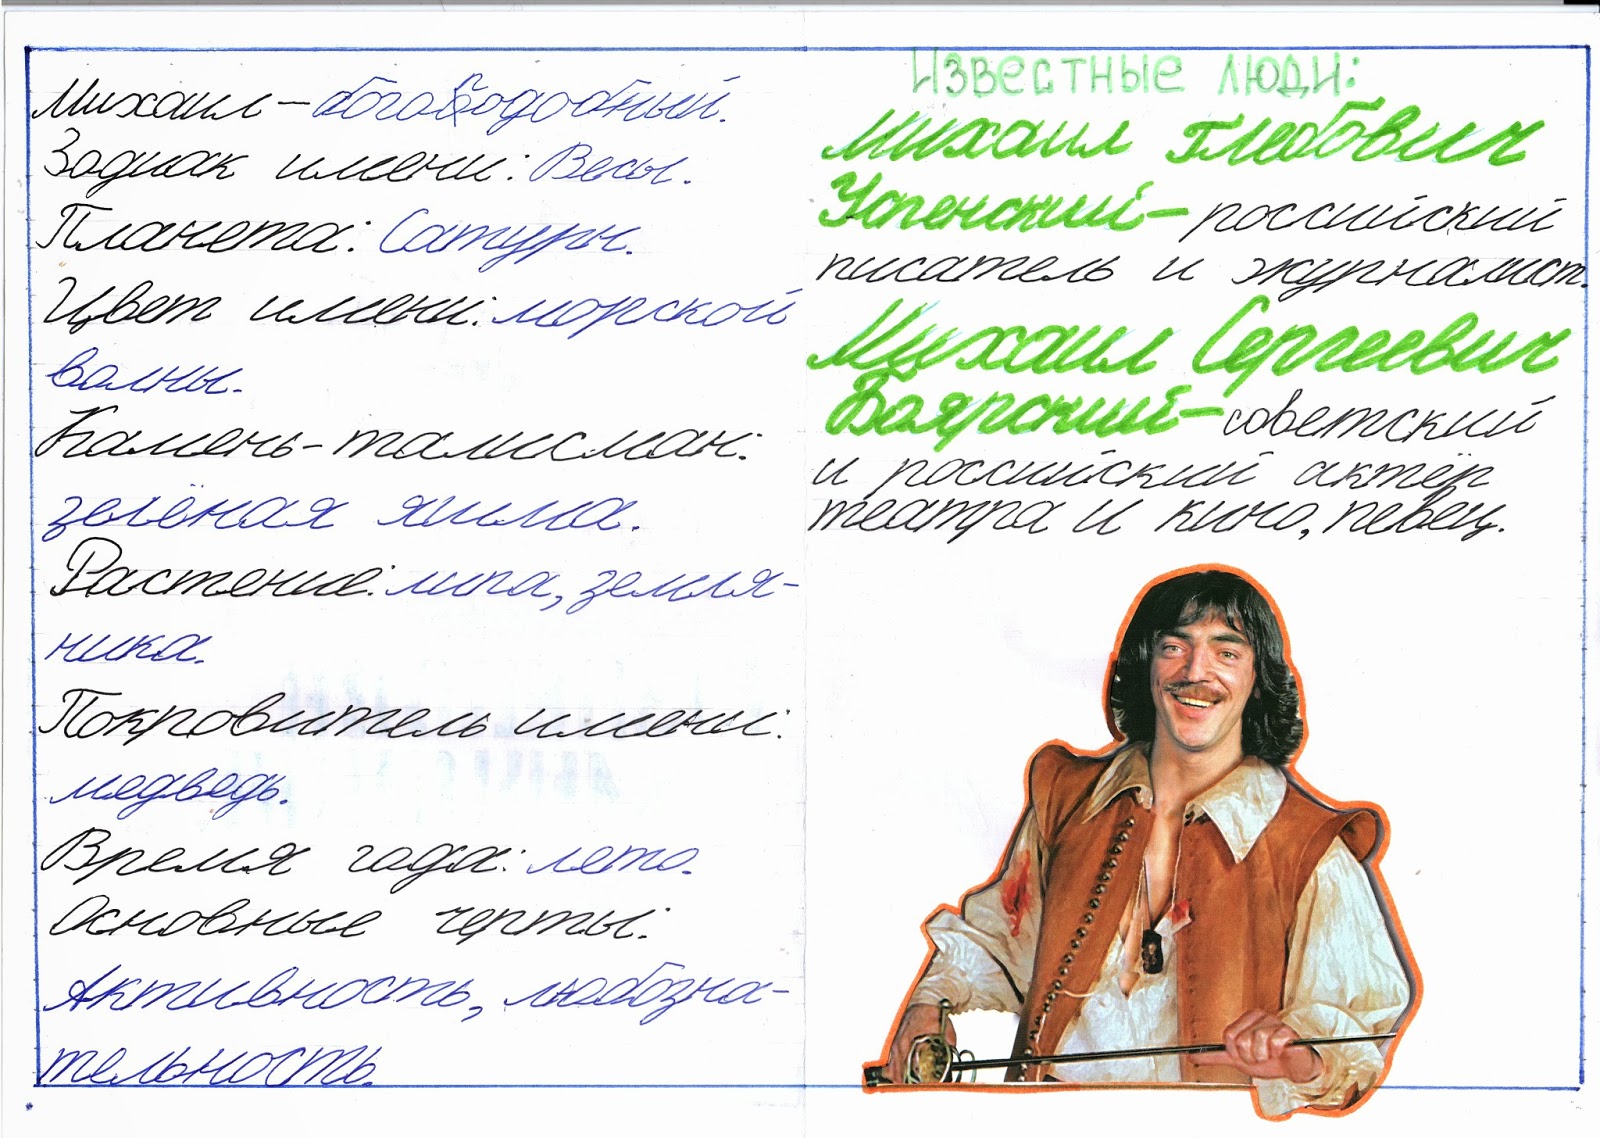 Михаил – богоподобный.
Зодиак имени: Весы.
Планета: Сатурн.
Цвет имени: морской
волны.
Камень-талисман:
зелёная яшма.
Растение: липа, земля-
ника.
Покровитель имени:
медведь.
Время года: лето.
Основные черты:
Активность, любозна-
тельность.
Известные люди:
Михаил Глебович
Успенский – российский
писатель и журналист.
Михаил Сергеевич
Боярский – советский
и российский актёр
театра и кино, певец.